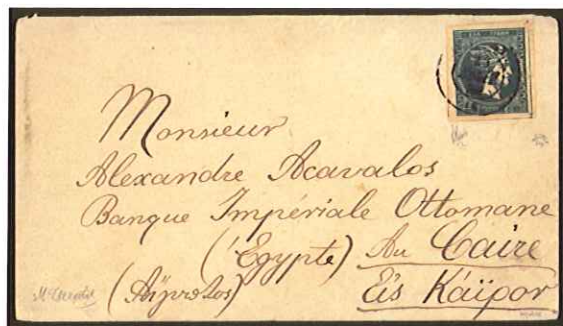 Monsieur
Alexandre Acavalos
Banque Impériale Ottomane
(Egypte) Au Caire
(Αἴγυπτος) Εἰς Κάϊρον